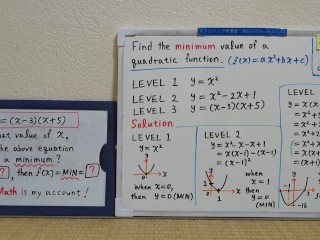 Find the minimum value of a
quadratic function. (f(x)=ax²+bx+c)
LEVEL 1 y=x²
LEVEL 2 y=x²-2x+1
LEVEL 3 y=(x-3)(x+5)
Solution
LEVEL 1
y=x²
y
x
0
when
x=0,
then
y=0 (MIN)
LEVEL 2
y=x²-x-x+1
=x(x-1)-(x-1)
=(x-1)²
y
1
0
1
x
when
x=1
then
y=0
(MIN)
LEVEL
y=(x
=x²+
=x²
=x²+
=(x
=(x
y
-1
-16
=(x-3)(x+5)
hat value of x,
the above equation
a minimum?
?, then f(x)=MIN=?
Math is my account!